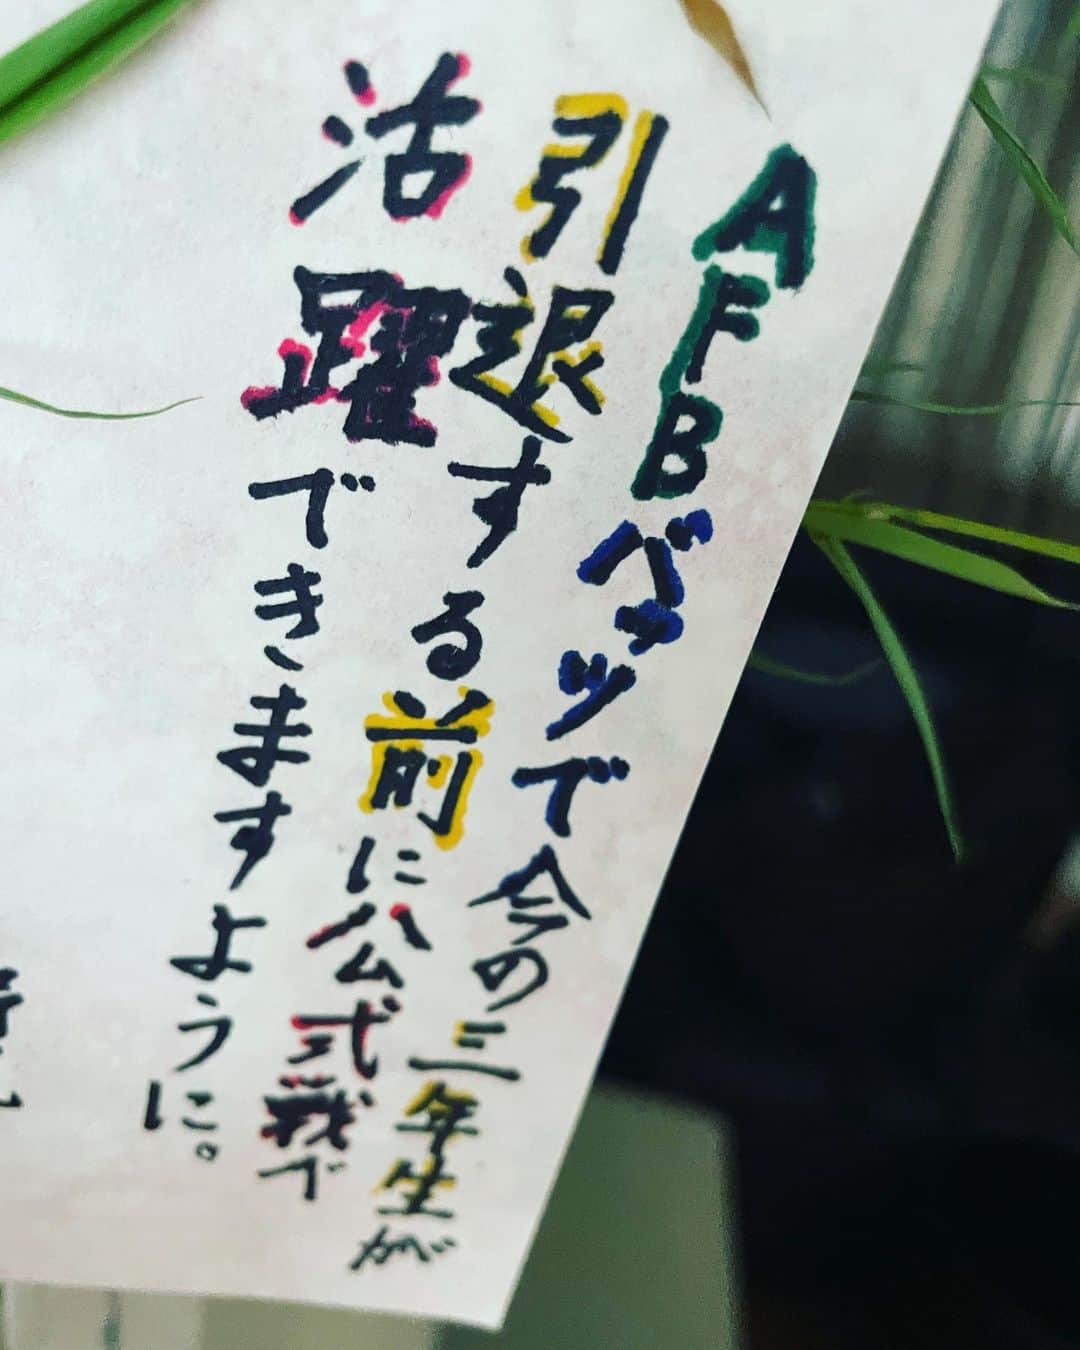 AFBベッツで今の三年生が
引退する前に公式戦で
活躍できますように。